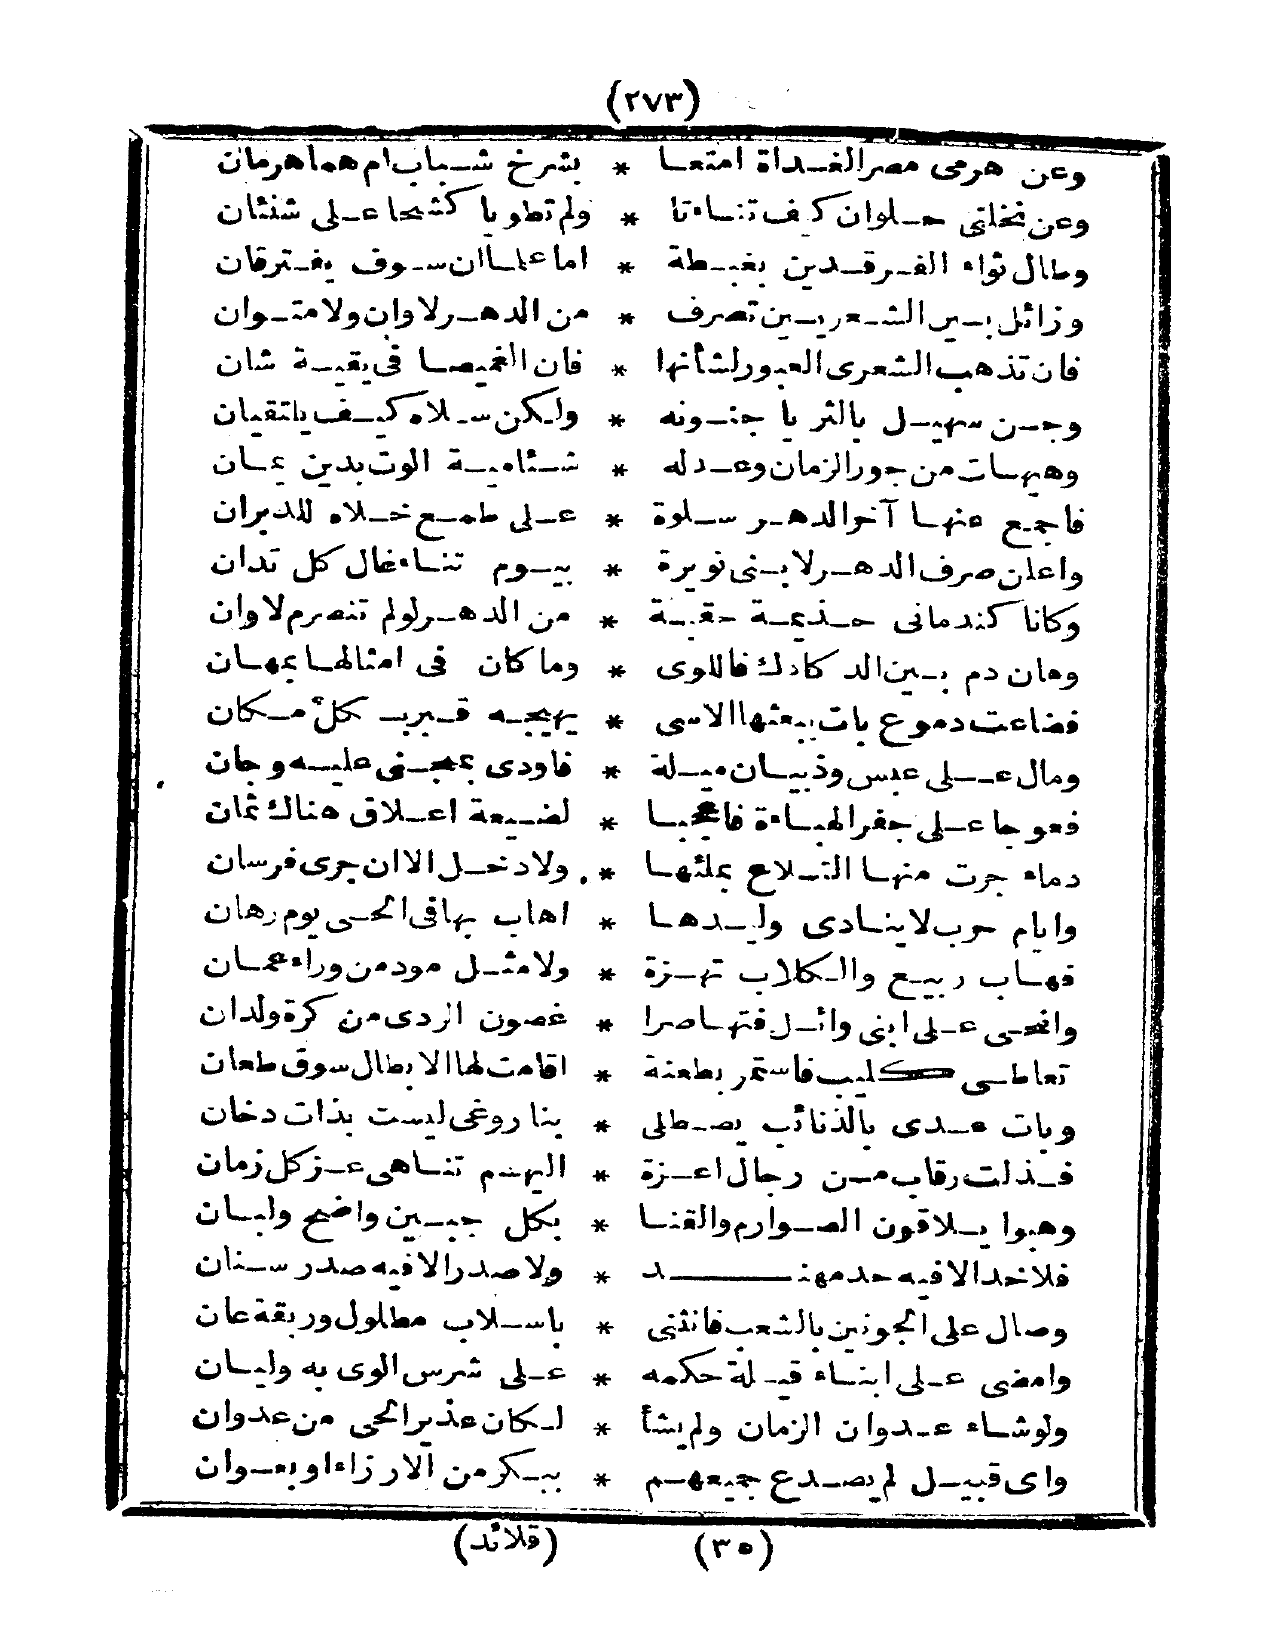 (٢٧٣)
وعن هرمى مصر الغداة امتعا * بشرخ شباب ام هما هرمان
وعن نخلتى حلوان كيف تناءتا * ولم تطويا كشحا على شنئان
وطال ثواء الفرقدين بغبطة * اما علما ان سوف يفترقان
وزائل بين الشعريين تصرف * من الدهر لا وان ولا متوان
فان تذهب الشعرى العبور لشأنها * فان الغميصا فى بقية شان
وجن سهيل بالثريا جنونه * ولكن سلاه كيف يلتقيان
وهيهات من جور الزمان وعدله * شئامية الوت بدين يمان
فاجمع عنها آخر الدهر سلوة * على طمع خلاه للدبران
واعلن صرف الدهر لابنى نويرة * بيوم تناء غال كل تدان
وكانا كندمانى جذيمة حقبة * من الدهر لو لم تنصرم لاوان
وهان دم بين الدكادك فاللوى * وما كان فى امثالها بمهان
فضاعت دموع بات يبعثها الاسى * يهيجه قبر بكل مكان
ومال على عبس وذبيان ميلة * فاودى بمجنى عليه وجان
فعوجا على جفر الهباءة فاعجبا * لضيعة اعلاق هناك ثمان
دماء جرت منها التلاع بملئها * ولا دخل الا ان جرى فرسان
وايام حرب لا ينادى وليدها * اهاب بها فى الحى يوم رهان
فهاب ربيع والكلاب تهزة * ولا مثل مود من وراء عمان
وانحى على ابنى وائل فتهاصرا * غصون الردى من كرة ولدان
تعاطى كليب فاستمر بطعنة * اقامت لها الابطال سوق طعان
وبات عدى بالذنائب يصطلى * بنار وغى ليست بذات دخان
فذلت رقاب من رجال اعزة * اليهم تناهى عز كل زمان
وهبوا يلاقون الصوارم والقنا * بكل جبين واضح ولبان
فلا خد الا فيه حد مهند * ولا صدر الا فيه صدر سنان
وصال على الجونين بالشعب فانثنى * باسلاب مطلول وربقة عان
وامضى على ابناء قيلة حكمه * على شرس الوى به وليان
ولو شاء عدوان الزمان ولم يشأ * لكان عذير الحى من عدوان
واى قبيل لم يصدع جميعهم * ببكر من الارزاء او بعوان
(٣٥) (قلائد)